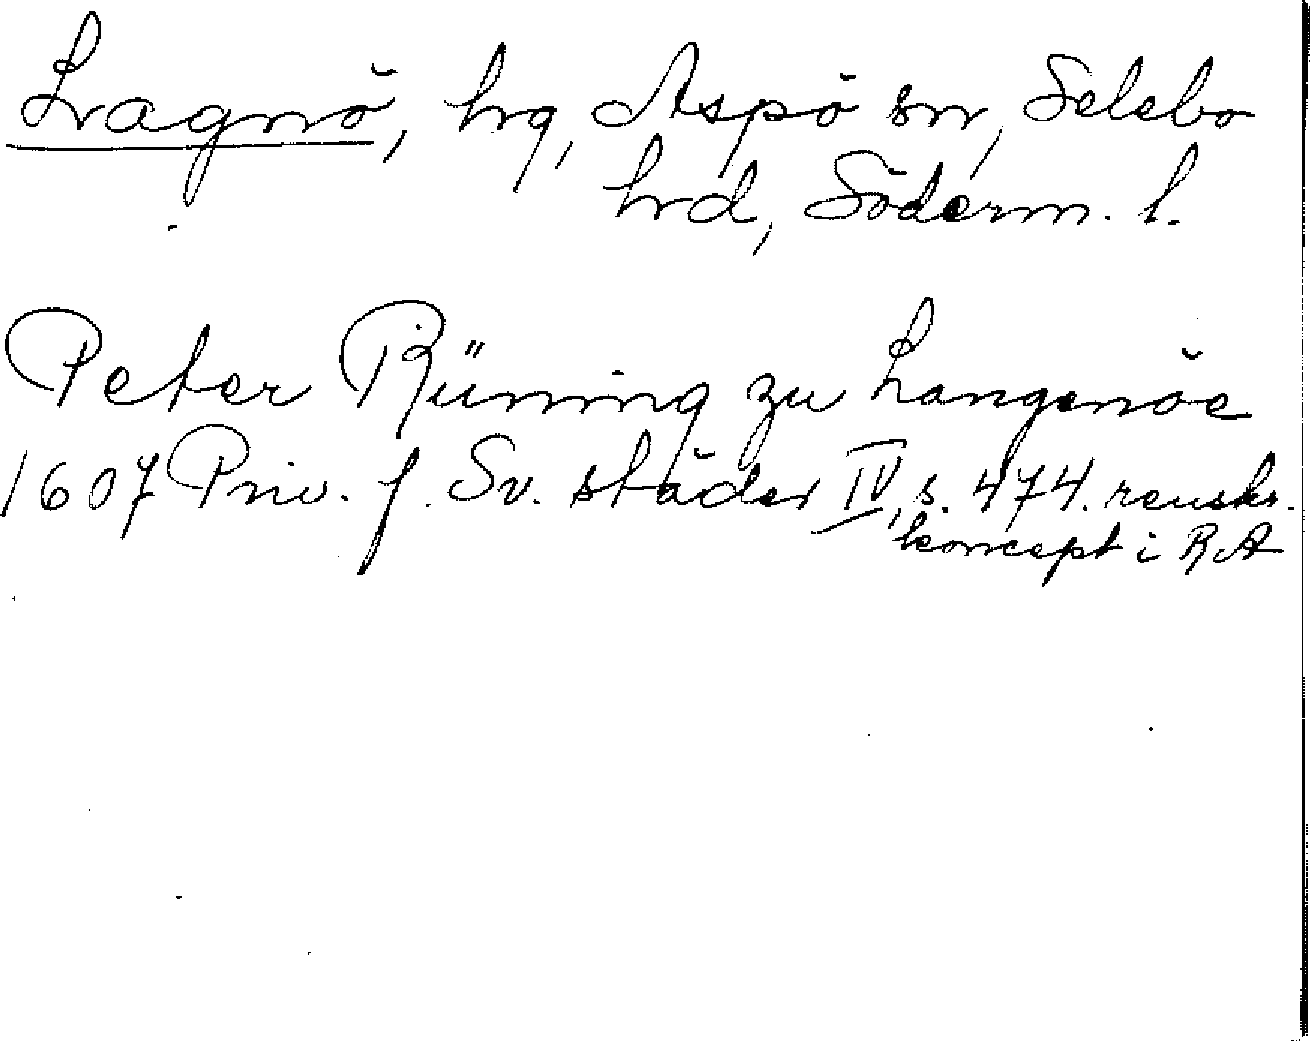 Lagnö, hg, Aspö sn, Selebo
hrd, Söderm. l.
Peter Rüning zu Langenöe
1607 Priv. f. Sv. städer IV, s. 474. renskr.
koncept i RA